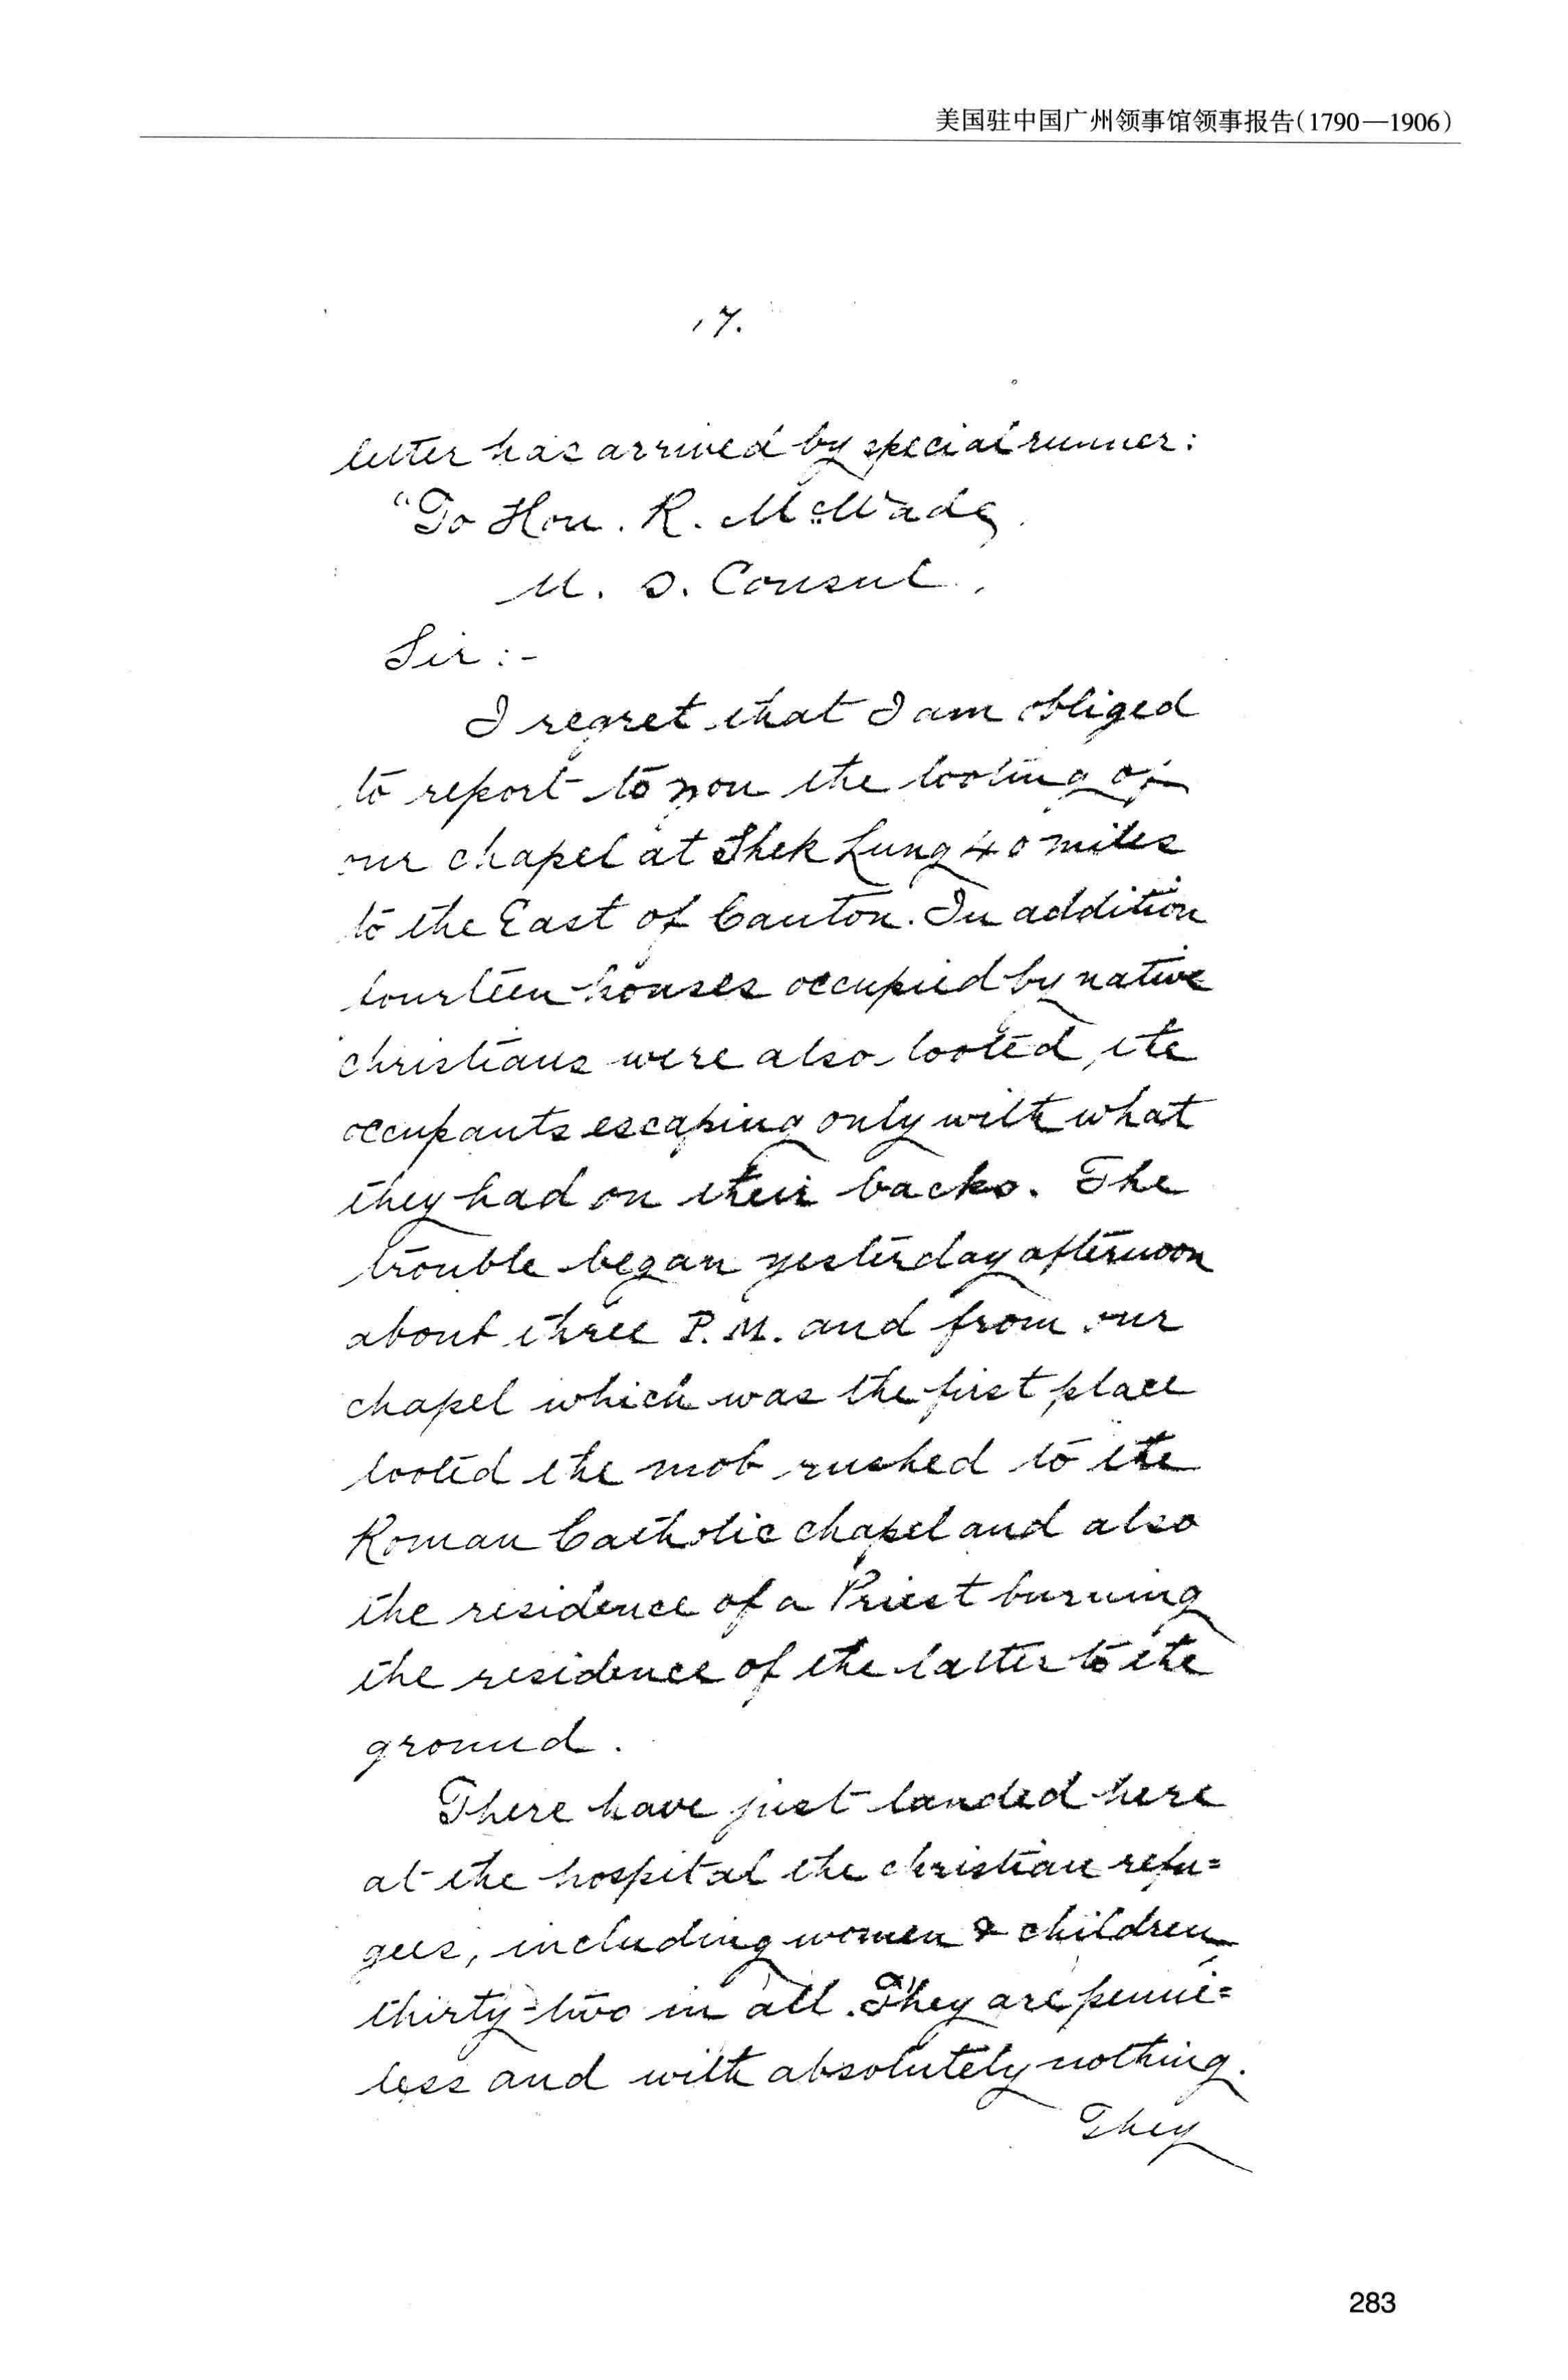 美国驻中国广州领事馆领事报告(1790—1906)
17.
letter has arrived by special runner:
"To Hon. R. McWade
U. S. Consul,
Sir :-
I regret that I am obliged
to report to you the looting of
our chapel at Shek Lung 40 miles
to the East of Canton. In addition
fourteen houses occupied by native
christians were also looted, the
occupants escaping only with what
they had on their backs. The
trouble began yesterday afternoon
about three P.M. and from our
chapel which was the first place
looted the mob rushed to the
Roman Catholic chapel and also
the residence of a Priest burning
the residence of the latter to the
ground.
There have just landed here
at the hospital the christian refu=
gees, including women & children
thirty-two in all. They are penni=
less and with absolutely nothing.
They
283